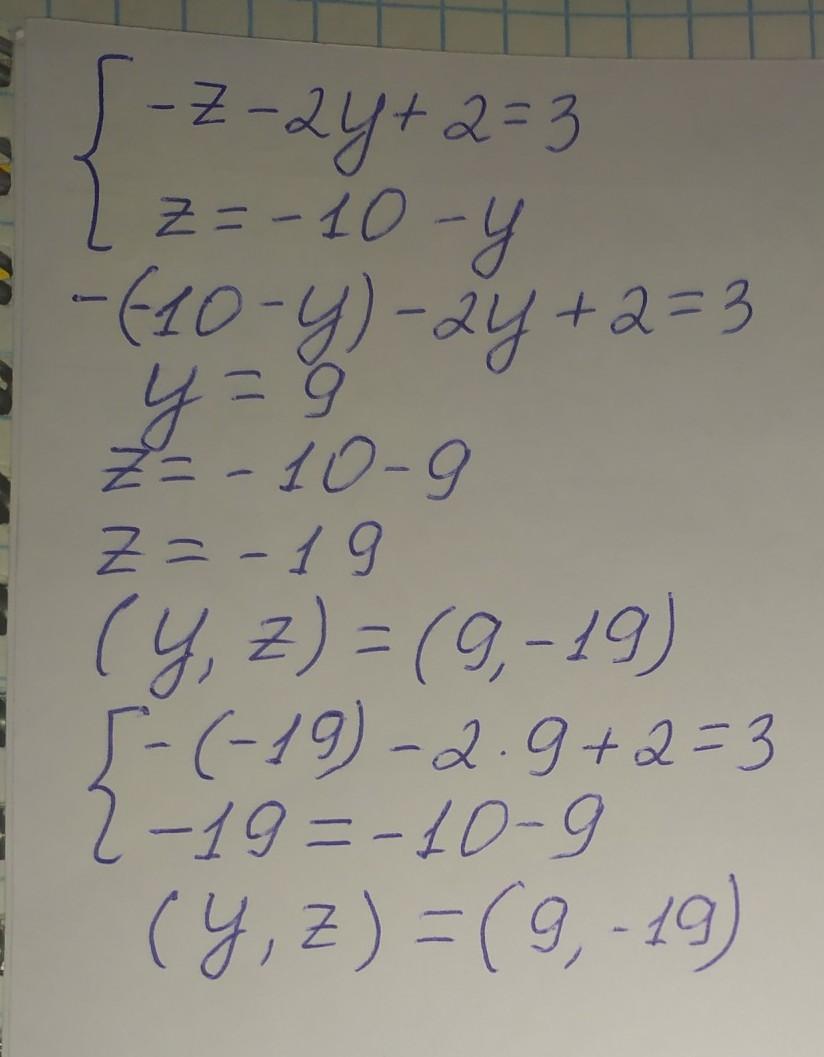 { -z-2y+2=3
z=-10-y
-(-10-y)-2y+2=3
y=9
z=-10-9
z=-19
(y,z)=(9,-19)
{ -(-19)-2·9+2=3
-19=-10-9
(y,z)=(9,-19)